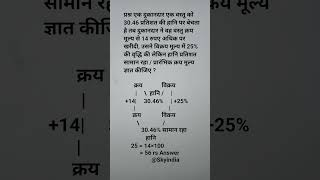 प्रश्न एक दुकानदार एक वस्तु को
30.46 प्रतिशत की हानि पर बेचता
है तब दुकानदार ने वह वस्तु क्रय
मूल्य से 14 रुपए अधिक पर
खरीदी, उसने विक्रय मूल्य में 25%
की वृद्धि की लेकिन हानि प्रतिशत
सामान रहा / प्रारंभिक क्रय मूल्य
ज्ञात कीजिए ?
क्रय विक्रय
| \ हानि / |
+14| 30.46% |+25%
| |
क्रय विक्रय
\ /
30.46% सामान रहा
हानि
25 = 14×100
= 56 rs Answer
@Skyindia
-25%
+14|